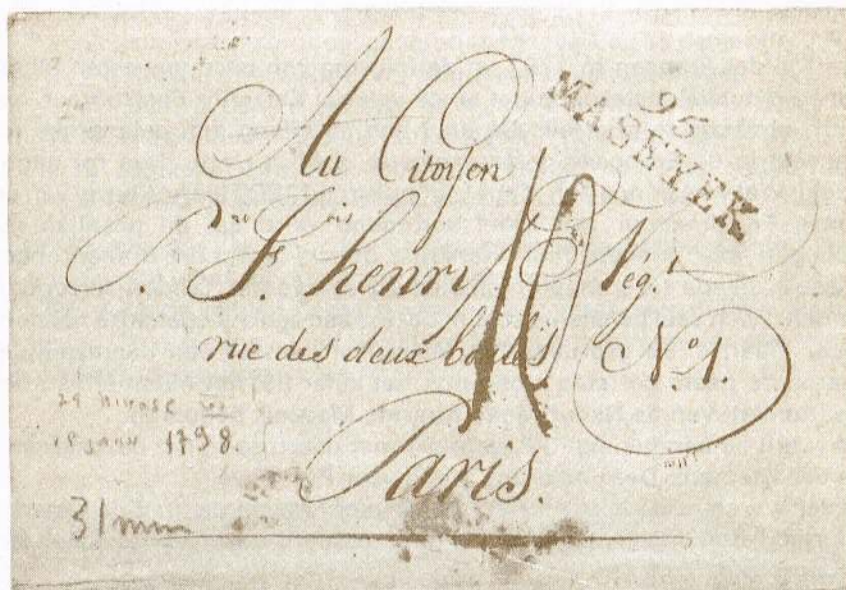 95
MASEYEK
Au Citoyen
F.s henry Nég.t
rue des deux boules N.o 1.
Paris.
10
29 nivose
18 janv 1798.
31mm